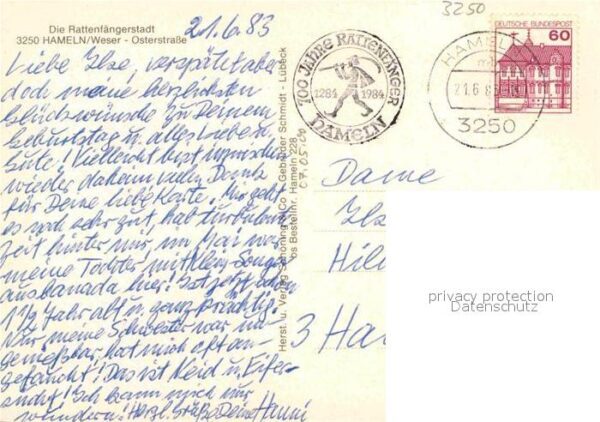 Die Rattenfängerstadt
3250 HAMELN/Weser - Osterstraße
21.6.83
Liebe Ilse, verspätet aber
doch meine herzlichsten
Glückwünsche zu Deinem
Geburtstag u. alles Liebe u.
Gute! Vielleicht bist inzwischen
wieder daheim, vielen Dank
für Deine liebe Karte. Mir geht
es noch sehr gut, hab turbulente
Zeit hinter mir, im Mai war
meine Tochter mit klein
aus Kanada hier. Ist jetzt schon
1 1/2 Jahr alt u. ganz prächtig.
Nur meine Schwester war un-
genießbar, hat mich oft an-
gefaucht! Das ist Neid u. Eifer-
sucht! Ich kann mich nur
wundern! Herzl. Grüße Deine Hanni
Herst. u. Verlag Schöning & Co + Gebrüder Schmidt - Lübeck
Bestellnr. Hameln 228
07.05.00
700 JAHRE RATTENFÄNGER
1284 1984
HAMELN
3250
HAMELN
21.6.8
3250
DEUTSCHE BUNDESPOST
60
Dame
Ilse
Hil
3 Ha
privacy protection
Datenschutz